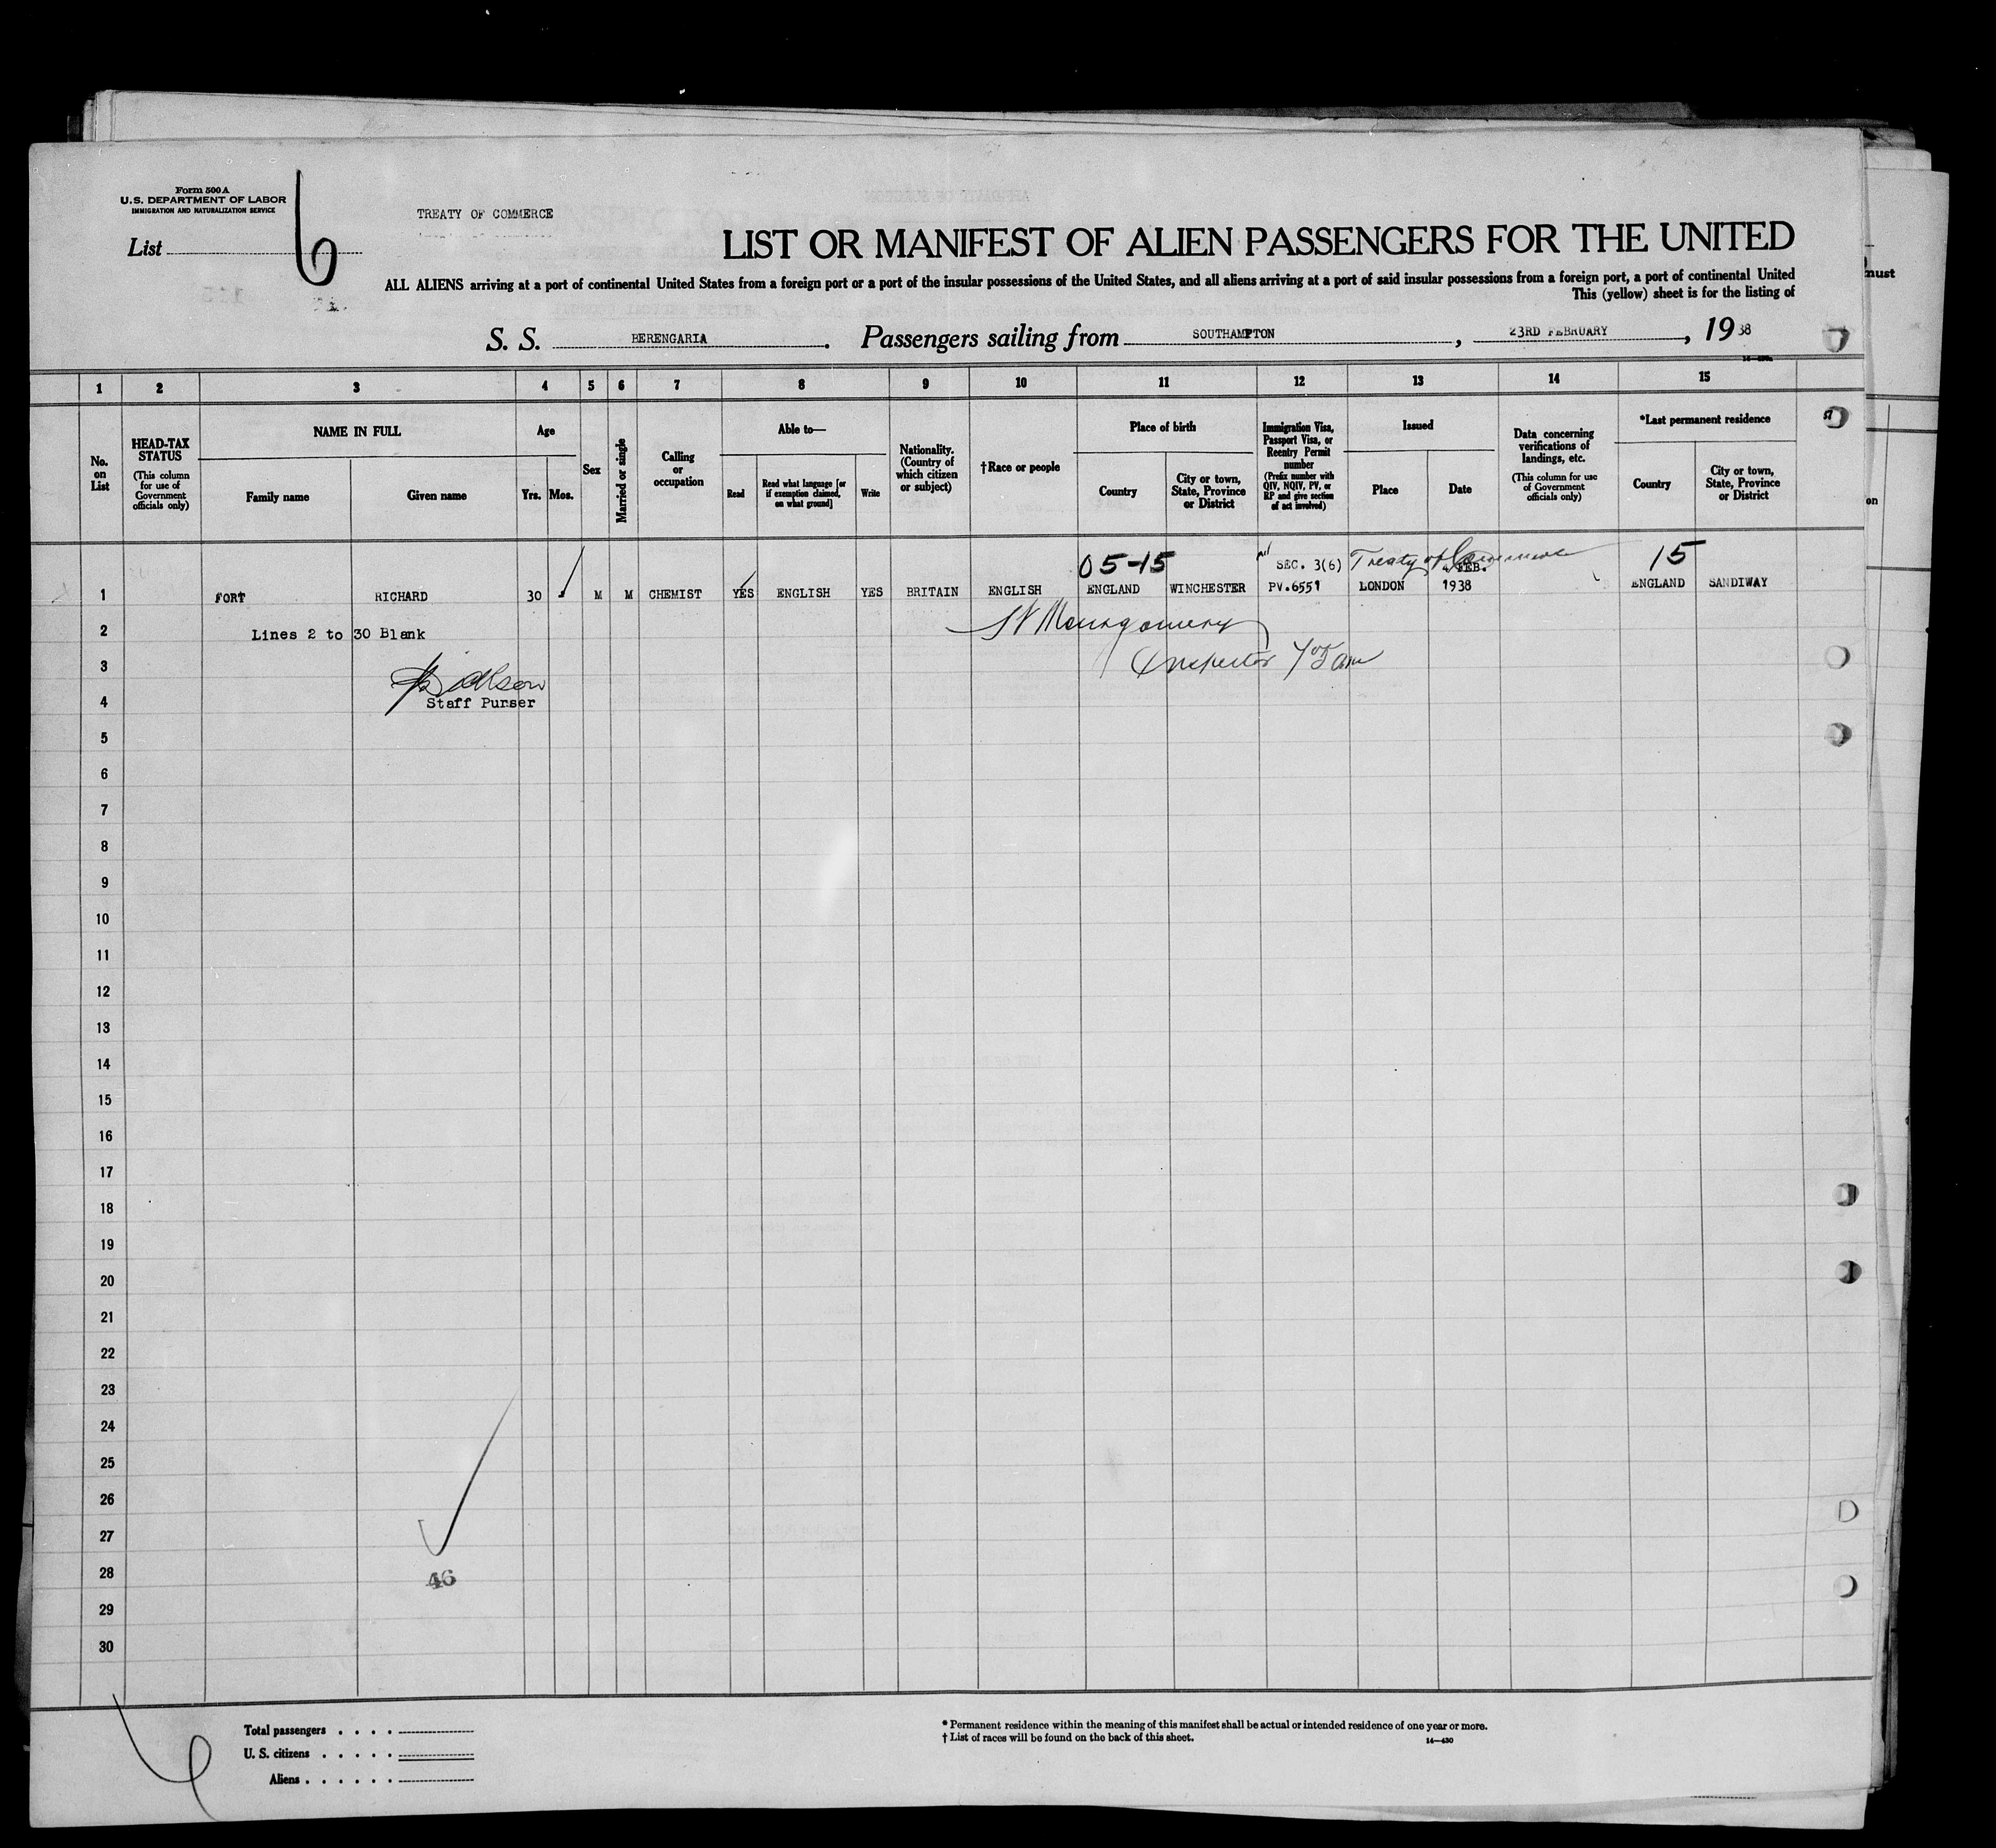 Form 500 A
U. S. DEPARTMENT OF LABOR
IMMIGRATION AND NATURALIZATION SERVICE
List
6
TREATY OF COMMERCE
LIST OR MANIFEST OF ALIEN PASSENGERS FOR THE UNITED
ALL ALIENS arriving at a port of continental United States from a foreign port or a port of the insular possessions of the United States, and all aliens arriving at a port of said insular possessions from a foreign port, a port of continental United
This (yellow) sheet is for the listing of
S. S. BERENGARIA. Passengers sailing from SOUTHAMPTON, 23RD FEBRUARY, 1938
1 2 3 4 5 6 7 8 9 10 11 12 13 14 15
No. on List
HEAD-TAX STATUS
(This column for use of Government officials only)
NAME IN FULL
Family name
Given name
Age
Yrs.
Mos.
Sex
Married or single
Calling or occupation
Able to—
Read
Read what language [or if exemption claimed, on what ground]
Write
Nationality. (Country of which citizen or subject)
†Race or people
Place of birth
Country
City or town, State, Province or District
Immigration Visa, Passport Visa, or Reentry Permit number
(Prefix number with QIV, NQIV, PV, or RP and give section of act involved)
Issued
Place
Date
Data concerning verifications of landings, etc.
(This column for use of Government officials only)
*Last permanent residence
Country
City or town, State, Province or District
05-15 SEC. 3(6) Treaty of Commerce FEB. 15
1 FORT RICHARD 30 M M CHEMIST YES ENGLISH YES BRITAIN ENGLISH ENGLAND WINCHESTER PV.6551 LONDON 1938 ENGLAND SANDIWAY
2 Lines 2 to 30 Blank Montgomery
3 Inspector
4 Staff Purser
5
6
7
8
9
10
11
12
13
14
15
16
17
18
19
20
21
22
23
24
25
26
27
28 46
29
30
Total passengers
U. S. citizens
Aliens
* Permanent residence within the meaning of this manifest shall be actual or intended residence of one year or more.
† List of races will be found on the back of this sheet.
14—430
must
on